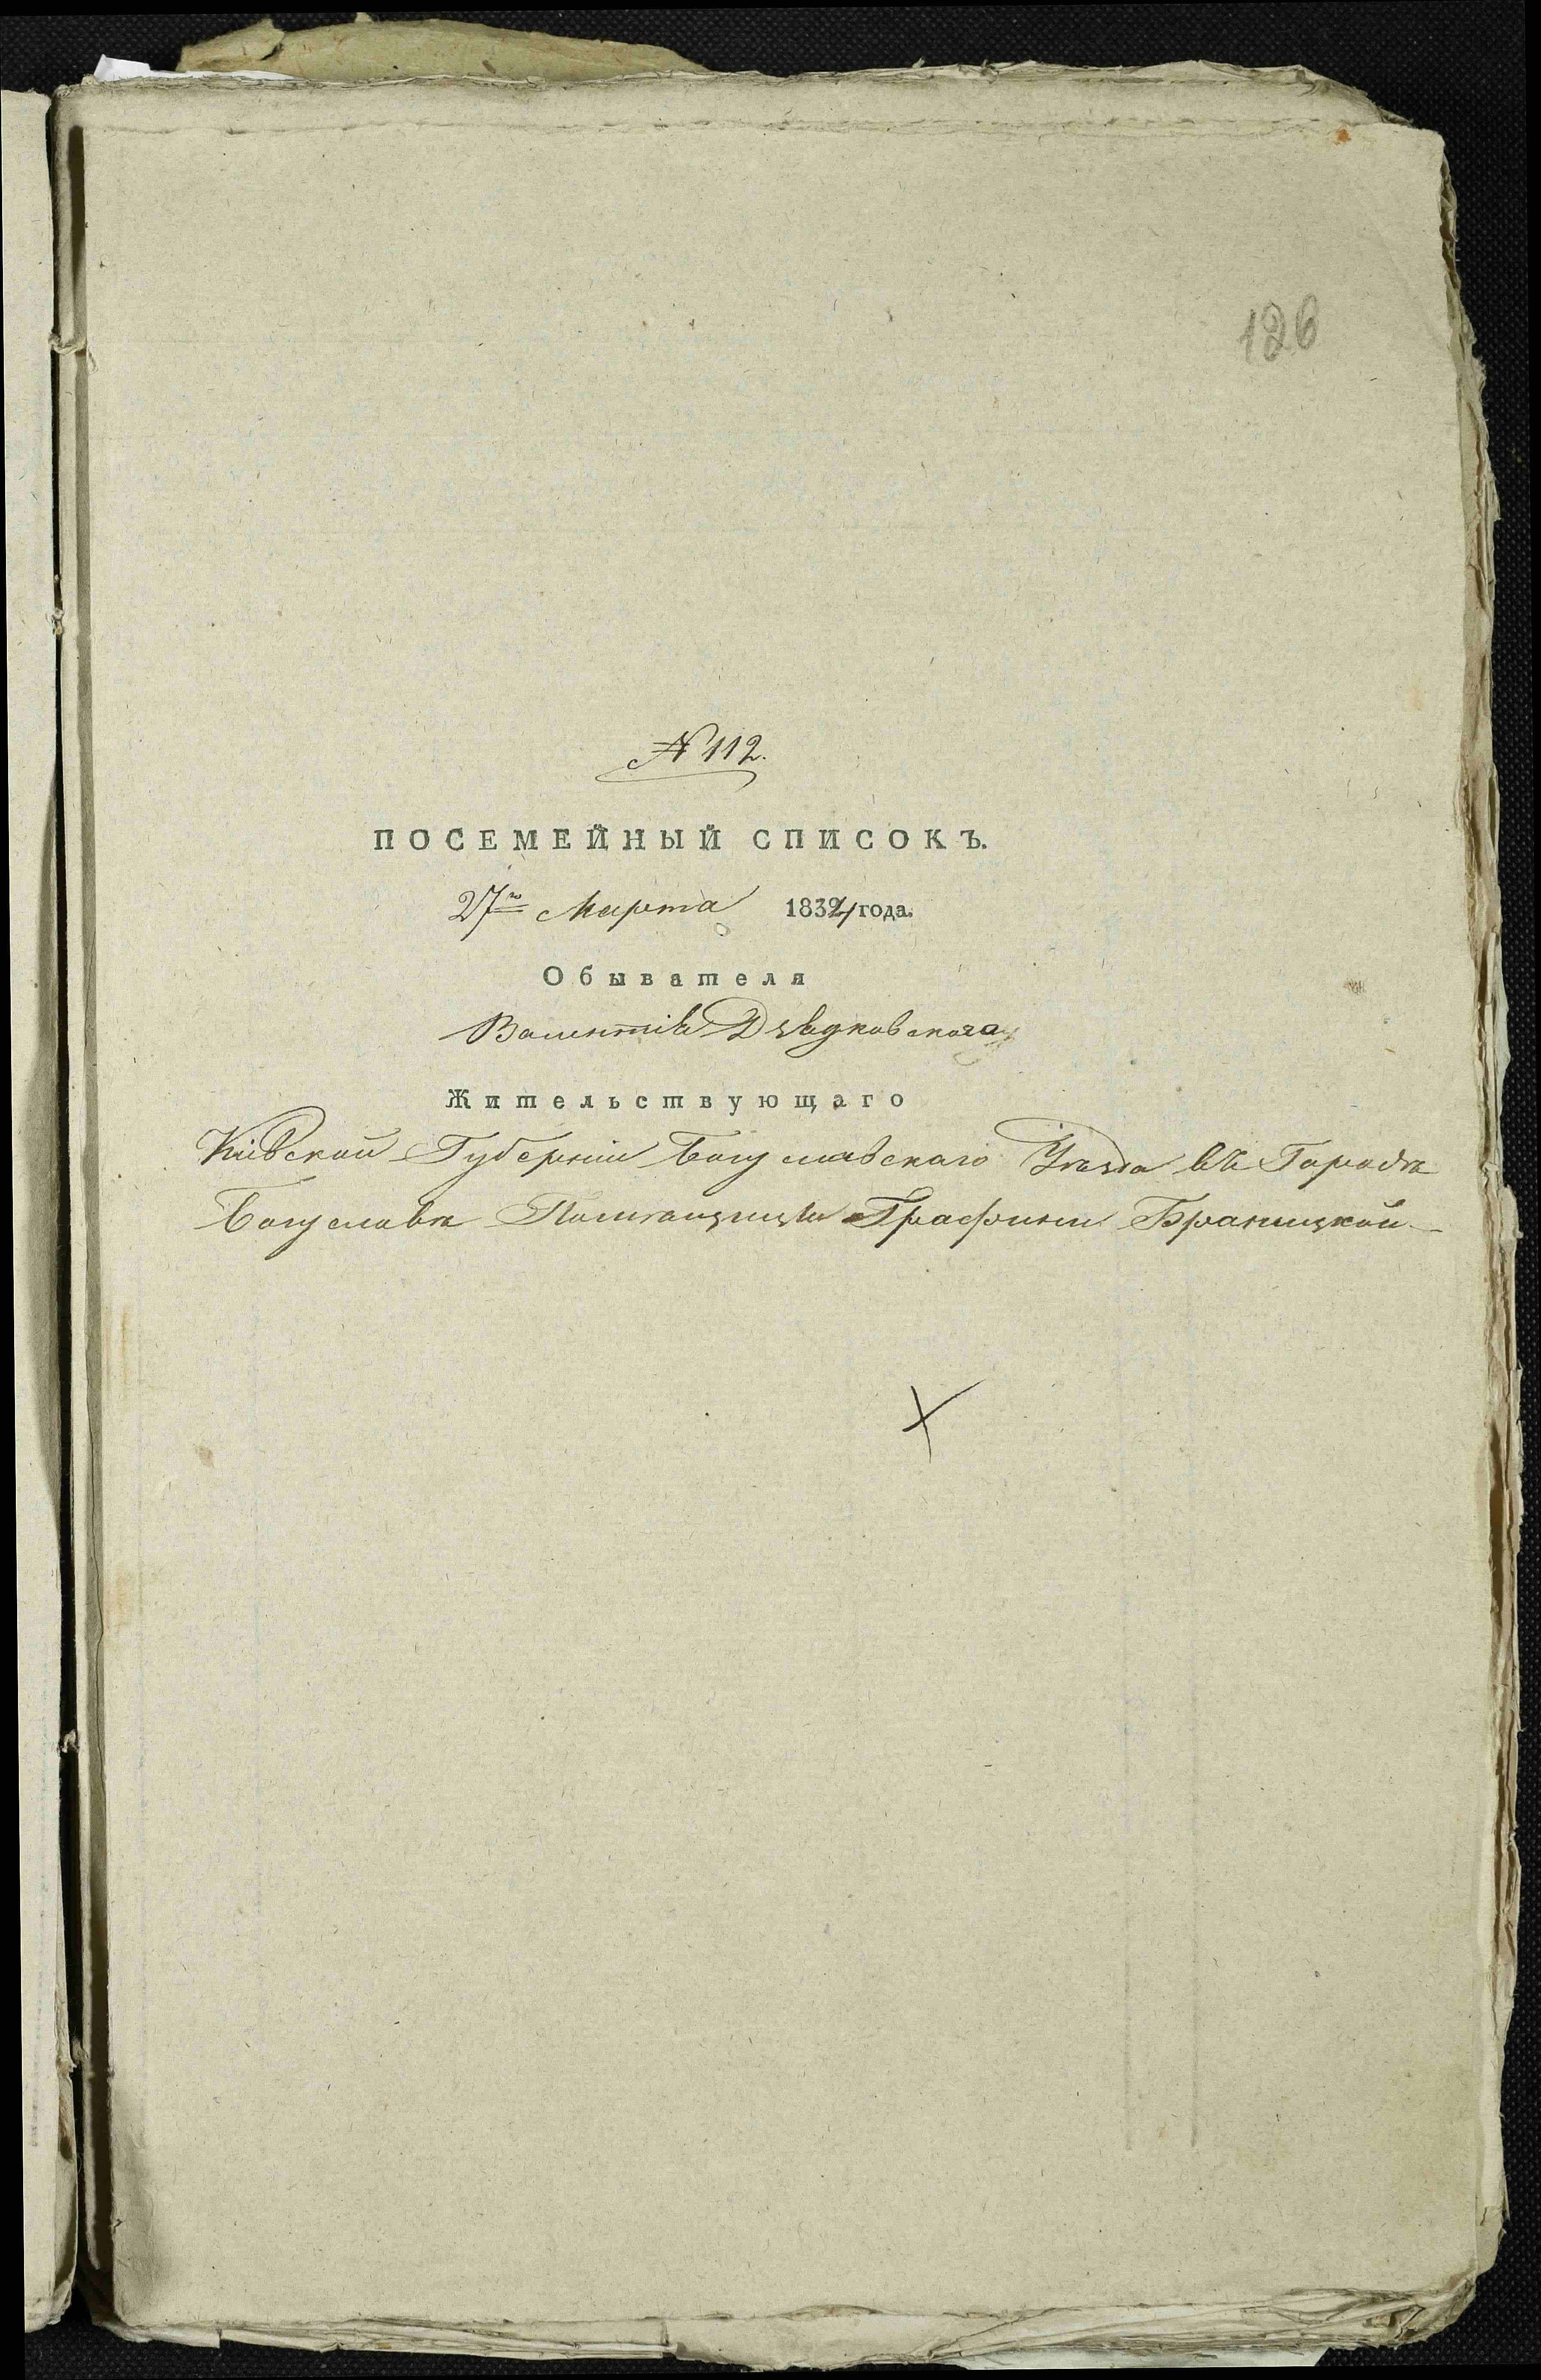 126
№ 112.
ПОСЕМЕЙНЫЙ СПИСОКЪ.
27го Марта 1834 года.
Обывателя
Валентія
Жительствующаго
Кіевской Губерніи Богуславскаго Уѣзда въ Городѣ
Богуславѣ Помѣщицы Графини Браницкой